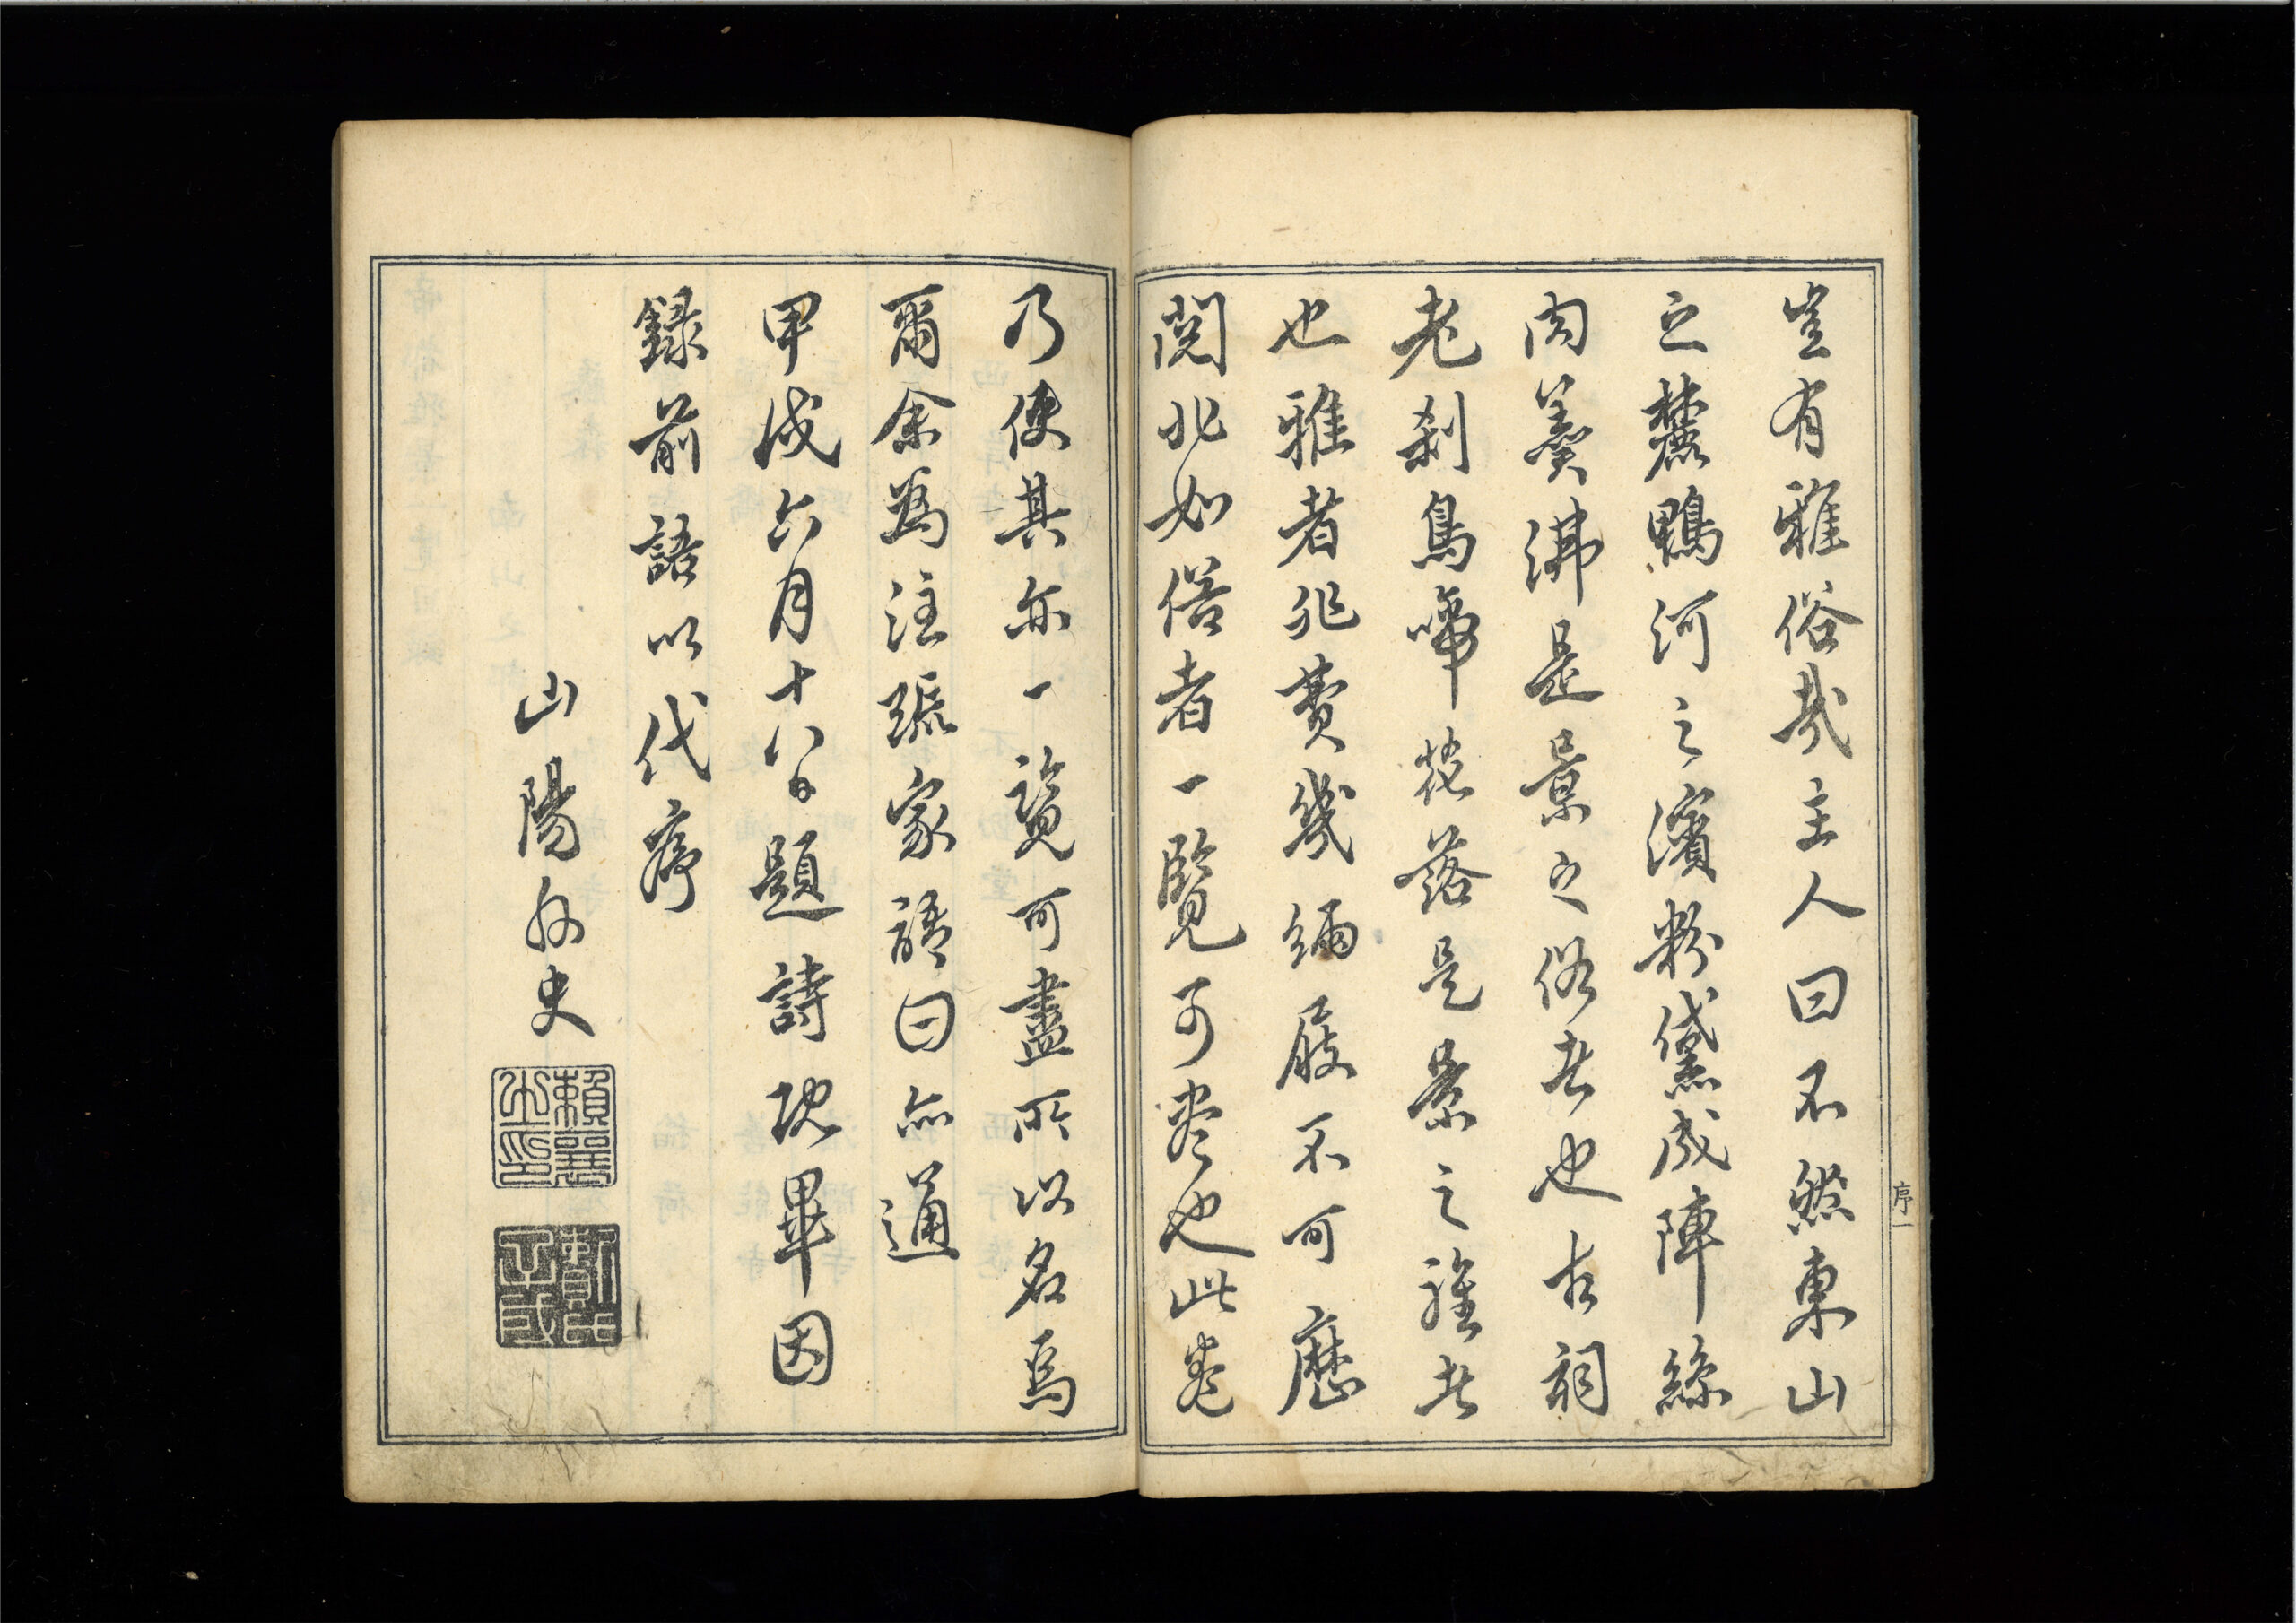 豈有雅俗哉主人曰不然東山
之麓鴨河之濱粉黛成陣絲
肉羹沸是景之俗者也古祠
老刹鳥啼花落是景之雅者
也雅者非費幾緉屐不可歷
閲非如俗者一覽可盡也此卷
序一
乃使其亦一覽可盡所以名焉
爾余爲注䟽家語曰亦通
甲戌六月十八日題詩既畢因
錄前語以代序
山陽外史
賴襄之印